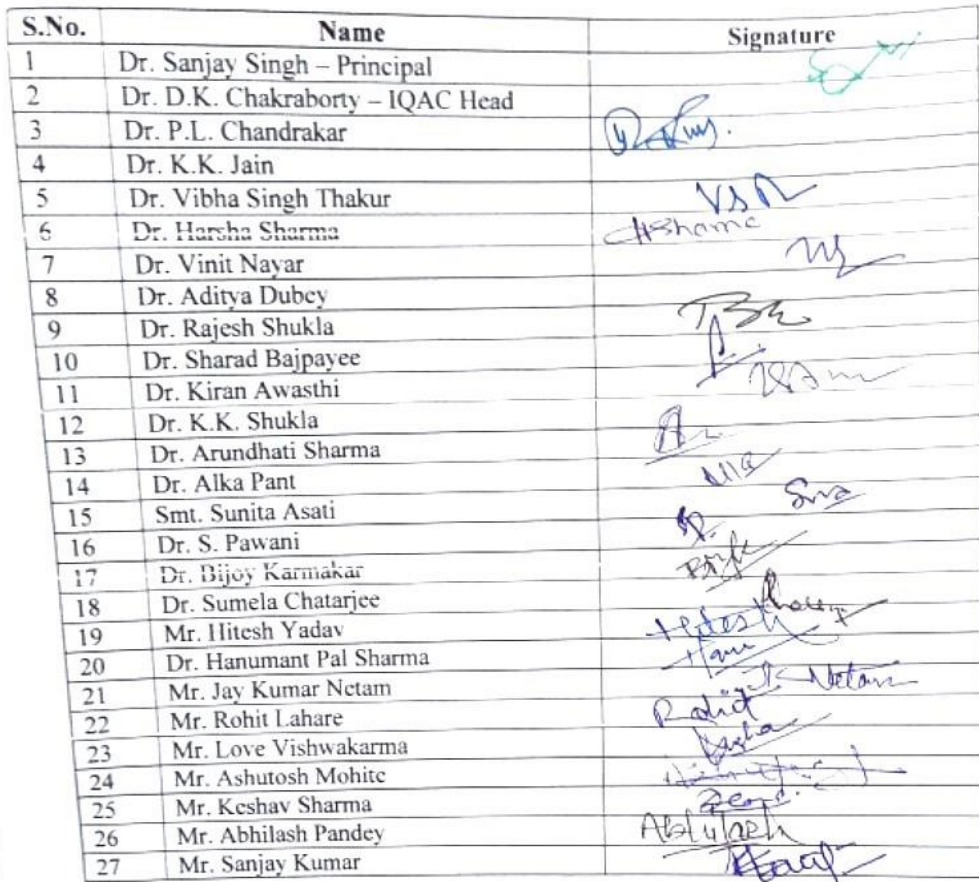 S.No. Name Signature
1 Dr. Sanjay Singh – Principal
2 Dr. D.K. Chakraborty – IQAC Head
3 Dr. P.L. Chandrakar
4 Dr. K.K. Jain
5 Dr. Vibha Singh Thakur
6 Dr. Harsha Sharma
7 Dr. Vinit Nayar
8 Dr. Aditya Dubey
9 Dr. Rajesh Shukla
10 Dr. Sharad Bajpayee
11 Dr. Kiran Awasthi
12 Dr. K.K. Shukla
13 Dr. Arundhati Sharma
14 Dr. Alka Pant
15 Smt. Sunita Asati
16 Dr. S. Pawani
17 Dr. Bijoy Karmakar
18 Dr. Sumela Chatarjee
19 Mr. Hitesh Yadav Hitesh
20 Dr. Hanumant Pal Sharma
21 Mr. Jay Kumar Netam Netam
22 Mr. Rohit Lahare Rohit
23 Mr. Love Vishwakarma
24 Mr. Ashutosh Mohite
25 Mr. Keshav Sharma
26 Mr. Abhilash Pandey Abhilash
27 Mr. Sanjay Kumar